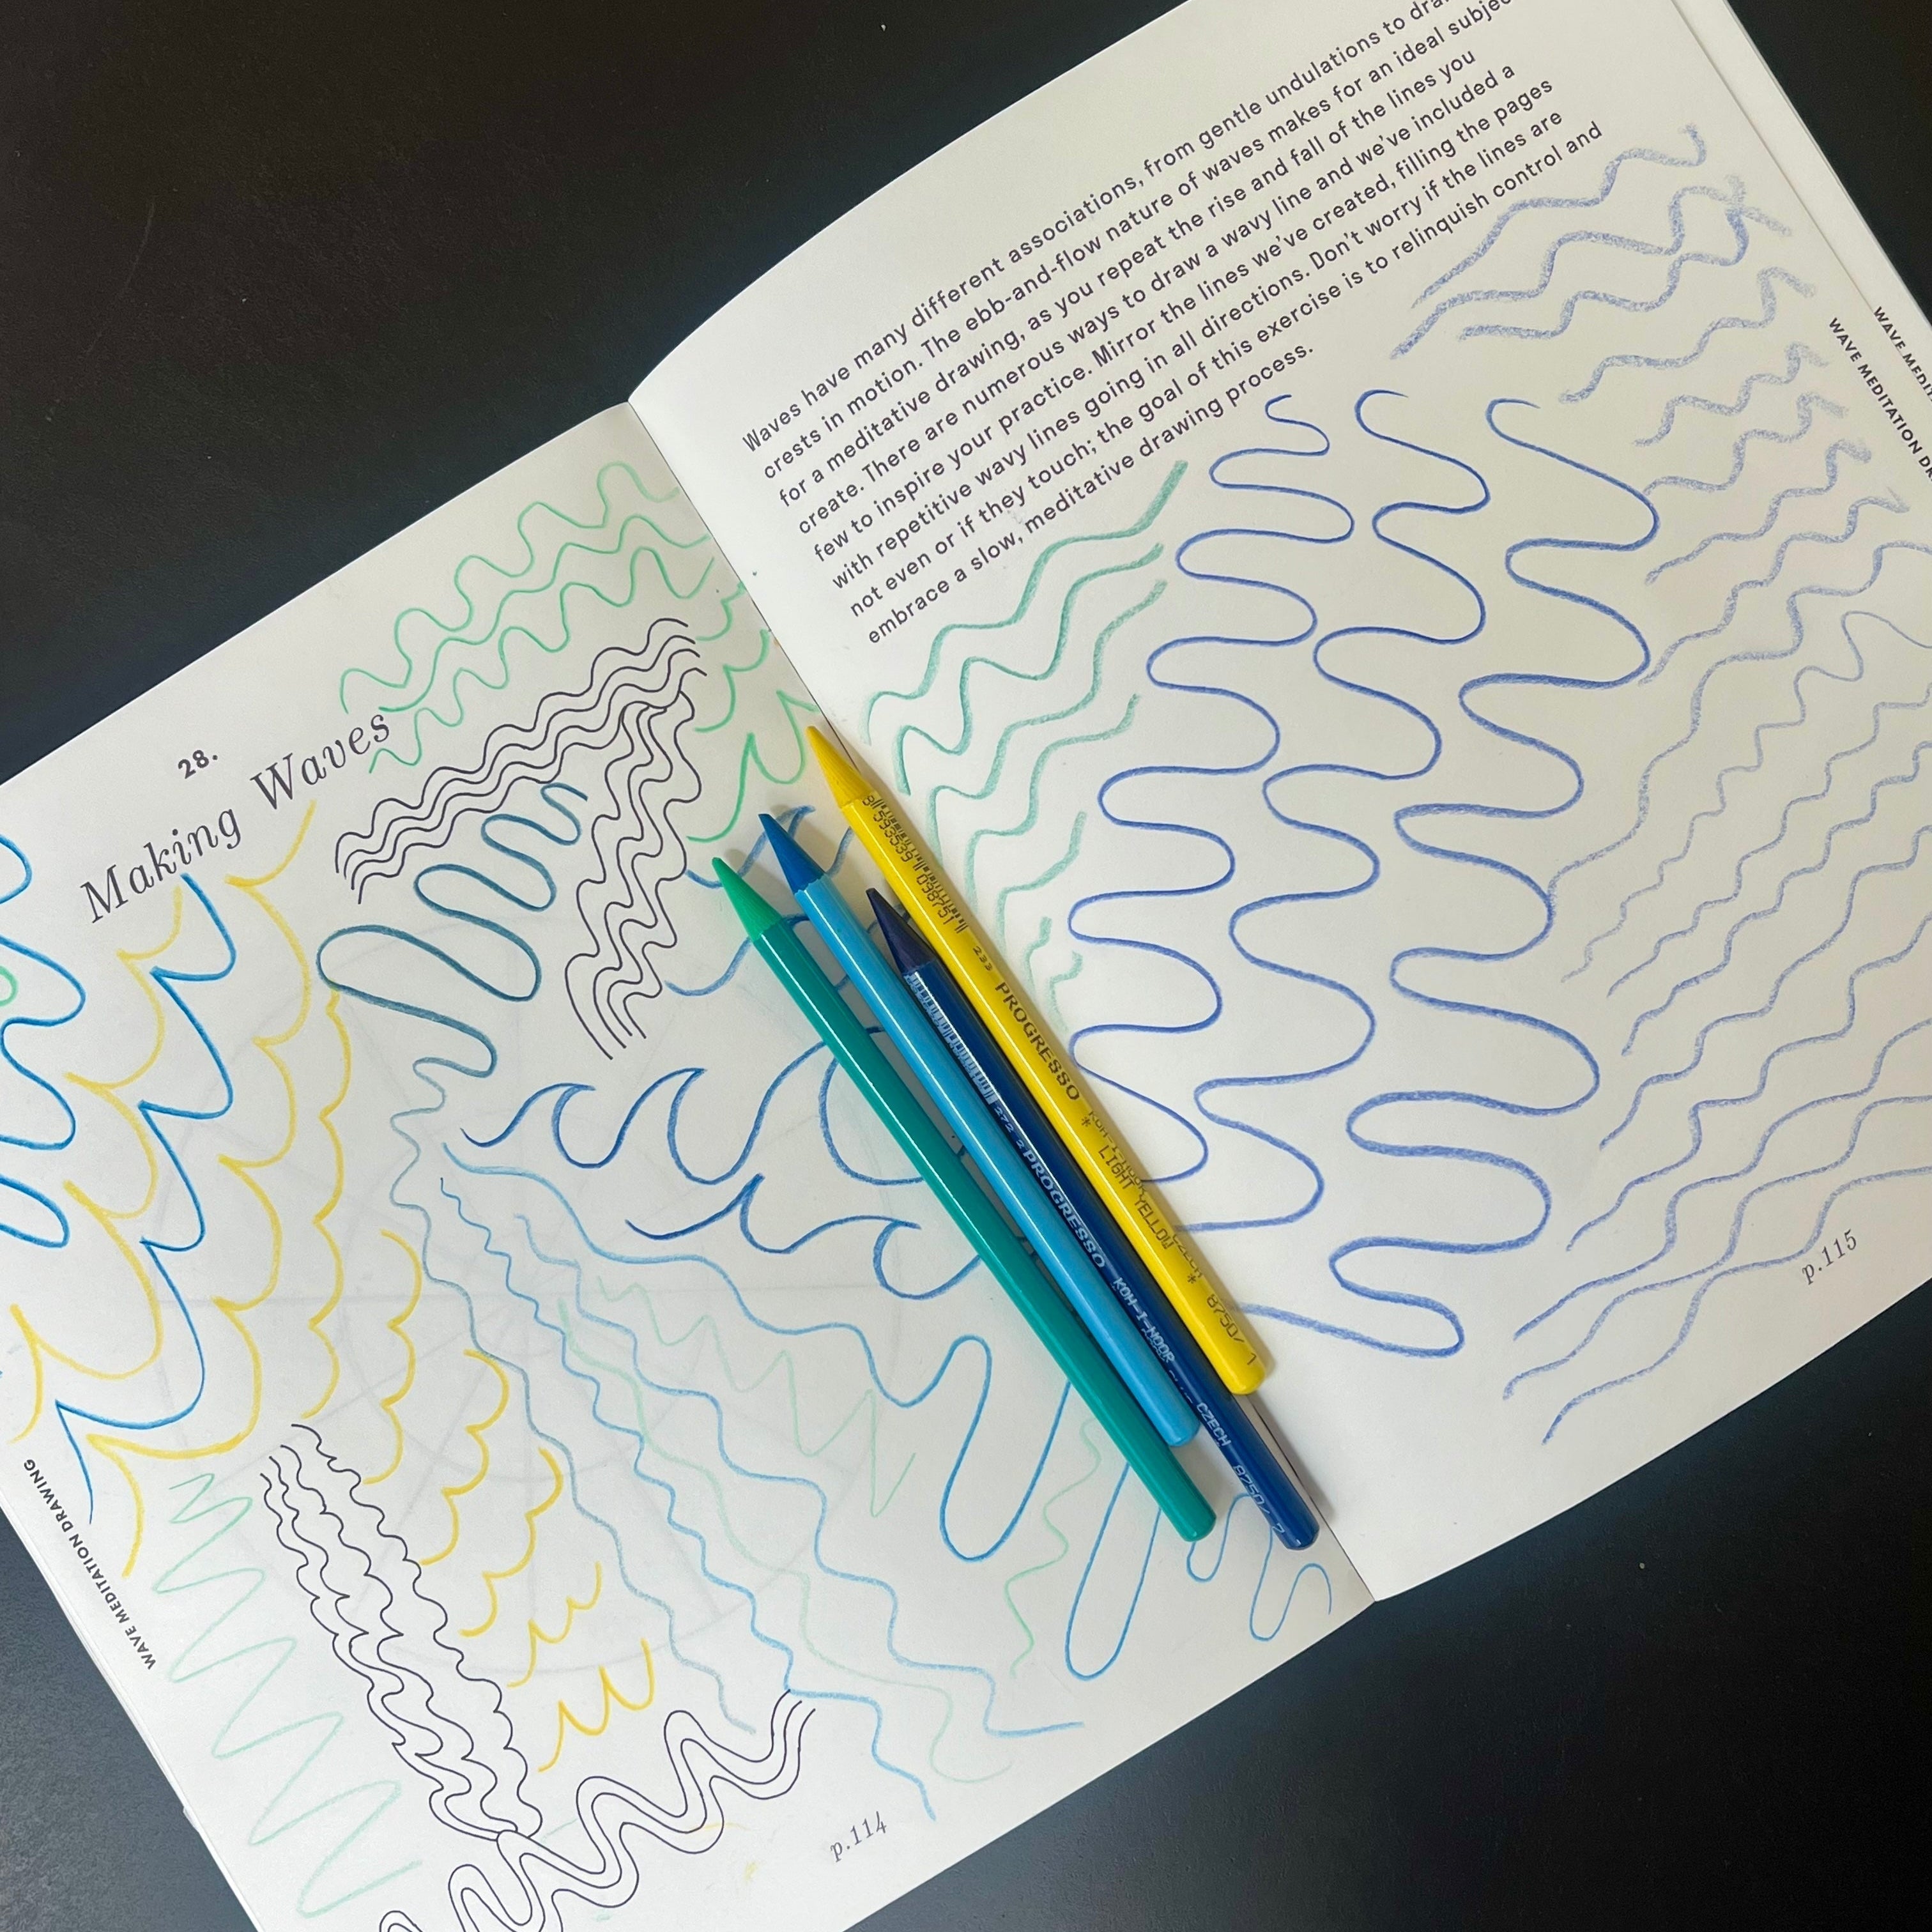 28.
Making Waves
WAVE MEDITATION DRAWING
p.114
Waves have many different associations, from gentle undulations to
crests in motion. The ebb-and-flow nature of waves makes for an ideal
for a meditative drawing, as you repeat the rise and fall of the lines you
create. There are numerous ways to draw a wavy line and we've included a
few to inspire your practice. Mirror the lines we've created, filling the pages
with repetitive wavy lines going in all directions. Don't worry if the lines are
not even or if they touch; the goal of this exercise is to relinquish control and
embrace a slow, meditative drawing process.
WAVE MEDITATION
WAVE
p.115
PROGRESSO
LIGHT YELLOW
PROGRESSO
KOH-I-NOOR
CZECH